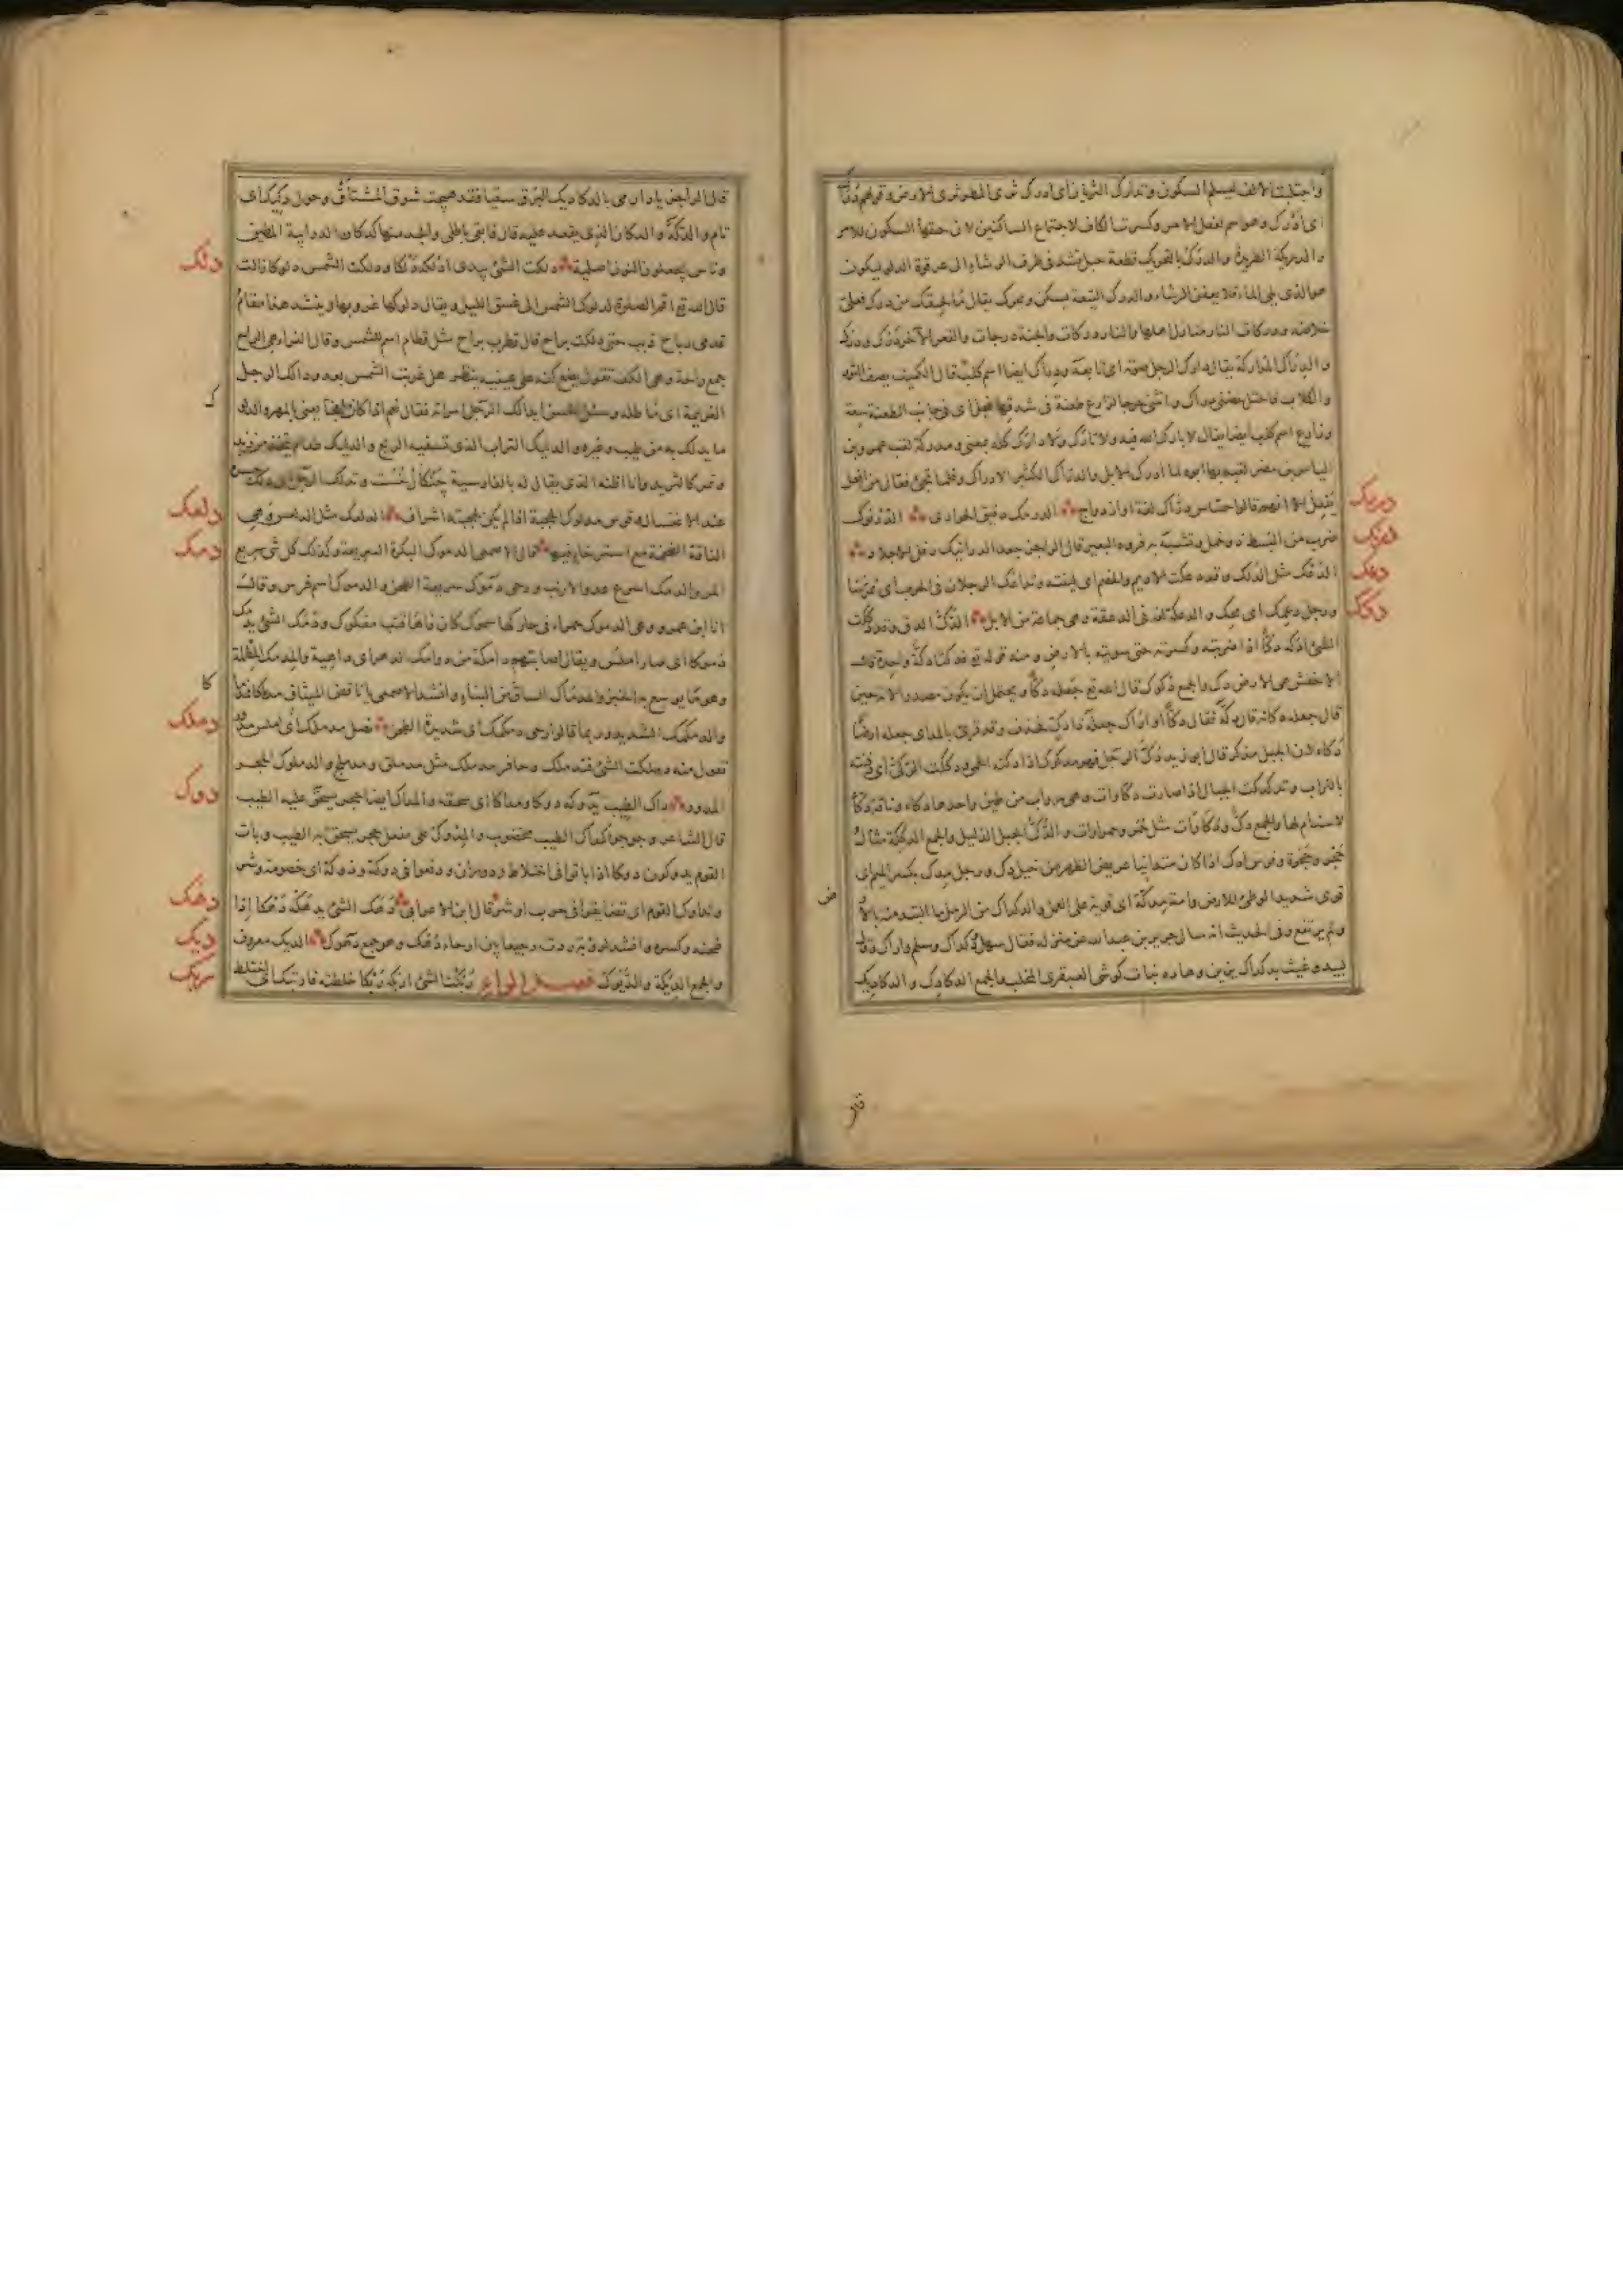 واجتلبت الالف ليسلم السكون وتدارك الثريان اى ادرك ثرى المطر ثرى الارض وقولهم دراك
اى ادرك وهو اسم لفعل الامر وكسرت الكاف لاجتماع الساكنين لان حقها السكون للامر
والدريكة الطريدة والدرك بالتحريك قطعة حبل تشد فى طرف الرشاء الى عرقوة الدلو ليكون
هو الذى يلى الماء فلا يعفن الرشاء والدرك التبعة يسكن ويحرك يقال ما لحقك من درك فعلى
خلاصه ودركات النار منازل اهلها والنار دركات والجنة درجات والقعر الآخر درك ودرك
والدراك المداركة يقال دارك الرجل صوته اى تابعه ودراك ايضا اسم كلب قال الكميت يصف الثور
والكلاب فاختل حضنى دراك وانثنى حرجا لزارع طعنة فى شدقها نجل اى فى جانب الطعنة سعة
وزارع اسم كلب ايضا يقال لا بارك الله فيه ولا تارك ولا دارك كله بمعنى ومدركة لقب عمرو بن
الياس بن مضر لقبه بها ابوه لما ادرك الابل والدراك الكثير الادراك وقلما يجئ فعال من افعل
يفعل الا انهم قالوا حساس دراك لغة او ازدواج الدرمك دقيق الحوارى الدرنوك
ضرب من البسط ذو خمل وتشبه به فروة البعير قال الراجز جعد الدرانيك رفل الاجلاد
الدعك مثل الدلك وقد دعكت الاديم والخصم اى لينته وتداعك الرجلان فى الحرب اى تمرسا
ورجل دعك اى محك والدعكة لغة فى الدعقة وهى جماعة من الابل الدك الدق وقد دككت
الشئ ادكه دكا اذا ضربته وكسرته حتى سويته بالارض ومنه قوله تع فدكتا دكة واحدة قال
الاخفش هى الارض دك والجمع دكوك قال الله تع جعله دكا ويحتمل ان يكون مصدرا لانه حين
قال جعله كانه قال دكه فقال دكا او اراد جعله ذا دك فحذف وقد قرئ بالمد اى جعله ارضا
دكاء لان الجبل مذكر قال ابو زيد دك الرجل فهو مدكوك اذا دكته الحمى ودككت الركى اى دفنته
بالتراب وتدكدكت الجبال اذا صارت دكاوات وهى رواب من طين واحدها دكاء وناقة دكاء
لا سنام لها والجمع دك ودكاوات مثل حمر وحمراوات والدك الجبل الذليل والجمع الدككة مثال
جحر وجحرة وفرس ادك اذا كان متدانيا عريض الظهر من خيل دك ورجل مدك بكسر الميم اى
قوى شديد الوطئ للارض وامة مدكة اى قوية على العمل والدكداك من الرمل ما التبد منه بالارض
ولم يرتفع وفى الحديث انه سال جرير بن عبد الله عن منزله فقال سهل ودكداك وسلم واراك وقال
لبيد وغيث بدكداك يزين وهاده نبات كوشى العبقرى المخلب والجمع الدكادك والدكاديك
دربك
درنك
دعك
دكك
ض
قال
قال الراجز يا دار مى بالدكاديك البرق سقيا فقد هيجت شوق المشتاق وحول دكيك اى
تام والدكة والدكان الذى يقعد عليه قال فابقى باطلى والجد منها كدكان الدرابنة المطين
وناس يجعلون النون اصلية دلكت الشئ بيدى ادلكه دلكا ودلكت الشمس دلوكا زالت
قال الله تع اقم الصلوة لدلوك الشمس الى غسق الليل ويقال دلوكها غروبها وينشد هذا مقام
قدمى رباح ذبب حتى دلكت براح قال قطرب براح مثل قطام اسم للشمس وقال الفراء هى الراح
جمع راحة وهى الكف تقول يضع كفه على عينيه ينظر هل غربت الشمس بعد ودالك الرجل
الغريمة اى ماطله وسئل الحسن ايدالك الرجل امراته فقال نعم اذا كان ملفجا يعنى بالمهر والدلوك
ما يدلك به من طيب وغيره والدليك التراب الذى تسفيه الريح والدليك طعام يتخذ من زبد
وتمر كالثريد وانا اظنه الذى يقال له بالفارسية چنكال خست وتدلك الرجل اى دلك جسده
عند الاغتسال وفرس مدلوك الحجبة اذا لم يكن لحجبته اشراف الدلعك مثل الدلعس وهى
الناقة الضخمة مع استرخاء فيها قال الاصمعى الدموك البكرة السريعة وكذلك كل شئ سريع
المر والدمك اسرع عدو الارنب ورحى دموك سريعة الطحن والدموك اسم فرس وقال
انا ابن عمرو وهى الدموك حمراء فى حاركها سموك كان فاها قتب مفكوك ودمك الشئ يدمك
دموكا اى صار املس ويقال اصابتهم دامكة من دوامك الدهر اى داهية والمدمك المطملة
وهو ما يوسع به الخبز والمدماك الساق من البناء وانشد الاصمعى الا يا ناقض الميثاق مدماكا فمدماكا
والدمكمك الشديد وربما قالوا رحى دمكمك اى شديدة الطحن نصل مدملك اى املس مدور
تقول منه دملكت الشئ فتدملك وحافر مدملك مثل مدملق ومدملج والدملوك الحجر
المدور داك الطيب يدوكه دوكا ومداكا اى سحقه والمداك ايضا حجر يسحق عليه الطيب
قال الشاعر وجوجوا كمداك الطيب مخضوب والمدوك على مفعل حجر يسحق به الطيب وبات
القوم يدوكون دوكا اذا باتوا فى اختلاط ودوران ووقعوا فى دوكة ودوكة اى خصومة وشر
وتداوك القوم اى تضايقوا فى حرب او شر قال ابن الاعرابى دهك الشئ يدهكه دهكا اذا
طحنه وكسره وانشد لرؤبة ردت رجيعا بين ارحاء دهك وهو جمع دهوك الديك معروف
والجمع الديكة والديوك فصل الراء ربكت الشئ اربكه ربكا خلطته فارتبك اى اختلط
دلك
دلعك
دمك
دملك
دوك
دهك
ديك
ربك
ك
كا